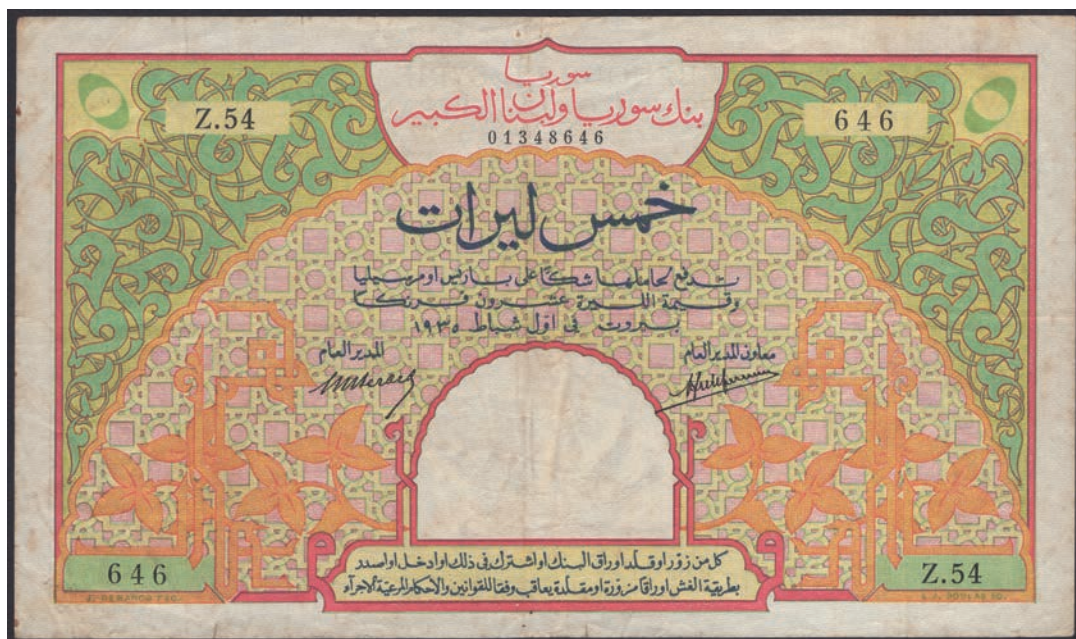 سوريا
بنك سوريا ولبنان الكبير
Z.54
646
01348646
خمس ليرات
تدفع لحاملها شكًا على باريس او مرسيليا
وقيمة الليرة عشرون فرنكا
بيروت في اول شباط ١٩٣٥
المدير العام
معاون المدير العام
كل من زور او قلد اوراق البنك او اشترك في ذلك او ادخل او اصدر
بطريقة الغش اوراقا مزورة او مقلدة يعاقب وفقا للقوانين والاحكام المرعية الاجراء
646
Z.54